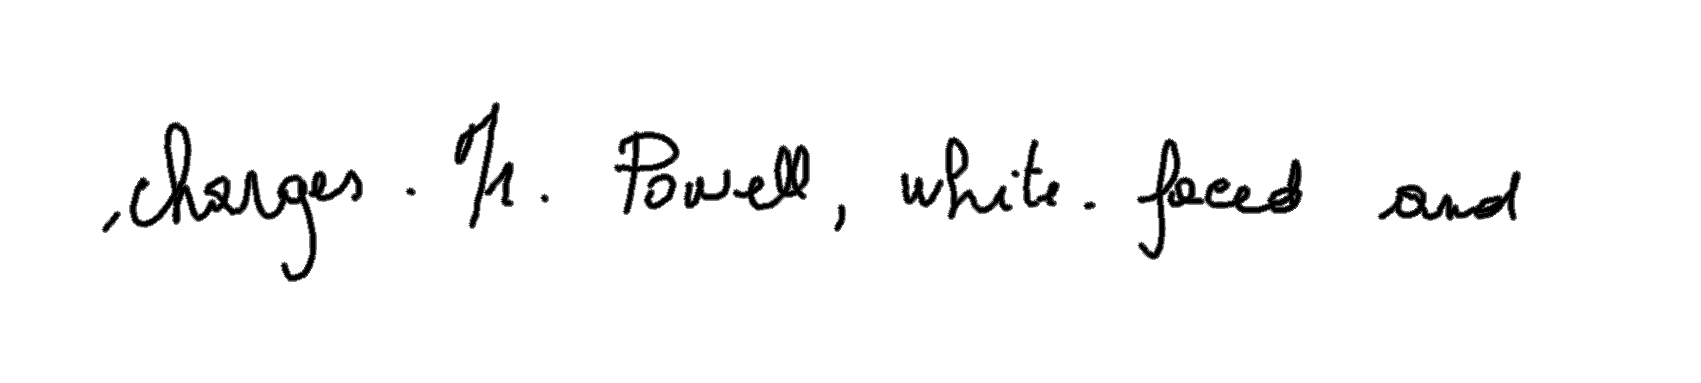 charges. Mr. Powell, white-faced and